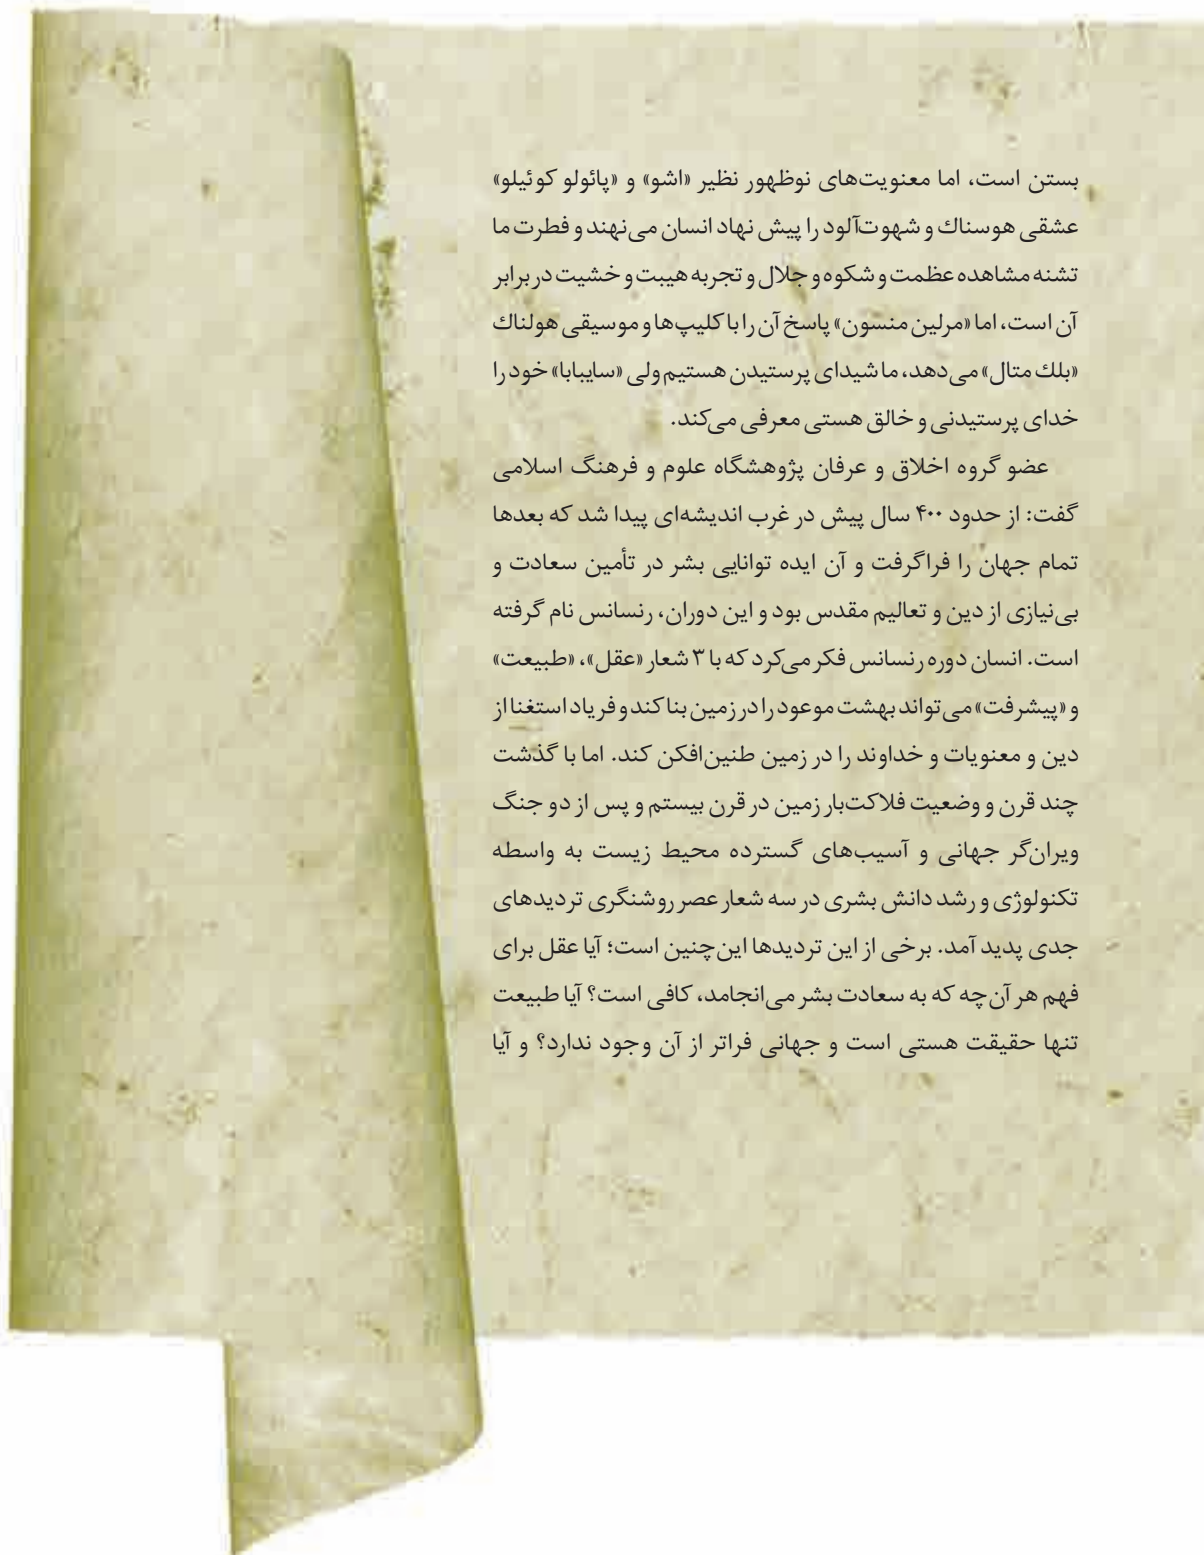 بستن است، اما معنویت‌های نوظهور نظیر «اشو» و «پائولو کوئیلو»
عشقی هوسناك و شهوت‌آلود را پیش نهاد انسان می‌نهند و فطرت ما
تشنه مشاهده عظمت و شکوه و جلال و تجربه هیبت و خشیت در برابر
آن است، اما «مرلین منسون» پاسخ آن را با کلیپ‌ها و موسیقی هولناك
«بلك متال» می‌دهد، ما شیدای پرستیدن هستیم ولی «سایبابا» خود را
خدای پرستیدنی و خالق هستی معرفی می‌کند.
عضو گروه اخلاق و عرفان پژوهشگاه علوم و فرهنگ اسلامی
گفت: از حدود ۴۰۰ سال پیش در غرب اندیشه‌ای پیدا شد که بعدها
تمام جهان را فراگرفت و آن ایده توانایی بشر در تأمین سعادت و
بی‌نیازی از دین و تعالیم مقدس بود و این دوران، رنسانس نام گرفته
است. انسان دوره رنسانس فکر می‌کرد که با ۳ شعار «عقل»، «طبیعت»
و «پیشرفت» می‌تواند بهشت موعود را در زمین بنا کند و فریاد استغنا از
دین و معنویات و خداوند را در زمین طنین‌افکن کند. اما با گذشت
چند قرن و وضعیت فلاکت‌بار زمین در قرن بیستم و پس از دو جنگ
ویران‌گر جهانی و آسیب‌های گسترده محیط زیست به واسطه
تکنولوژی و رشد دانش بشری در سه شعار عصر روشنگری تردیدهای
جدی پدید آمد. برخی از این تردیدها این‌چنین است؛ آیا عقل برای
فهم هر آن‌چه که به سعادت بشر می‌انجامد، کافی است؟ آیا طبیعت
تنها حقیقت هستی است و جهانی فراتر از آن وجود ندارد؟ و آیا